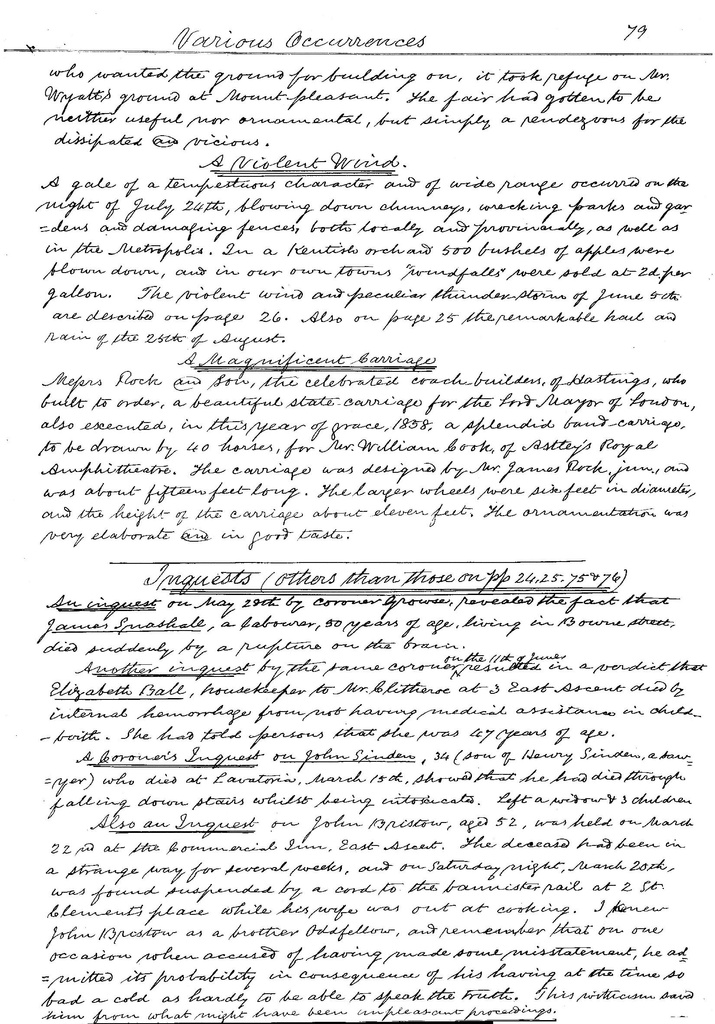 Various Occurrences 79
who wanted the ground for building on, it took refuge on Mr.
Wyatt's ground at Mount pleasant. The fair had gotten to be
neither useful nor ornamental, but simply a rendezvous for the
dissipated and vicious.
A Violent Wind.
A gale of a tempestuous character and of wide range occurred on the
night of July 24th, blowing down chimneys, wrecking parks and gar
=dens and damaging fences, both locally and provincially, as well as
in the Metropolis. In a Kentish orchard 500 bushels of apples were
blown down, and in our own towns "windfalls" were sold at 2d. per
gallon. The violent wind and peculiar thunder-storm of June 5th
are described on page 26. Also on page 25 the remarkable hail and
rain of the 25th of August.
A Magnificent Carriage
Messrs Rock and Son, the celebrated coach-builders, of Hastings, who
built to order, a beautiful state-carriage for the Lord Mayor of London,
also executed, in this year of grace, 1858, a splendid band-carriage,
to be drawn by 40 horses, for Mr. William Cook, of Astley's Royal
Amphitheatre. The carriage was designed by Mr. James Rock, jun., and
was about fifteen feet long. The larger wheels were six feet in diameter,
and the height of the carriage about eleven feet. The ornamentation was
very elaborate and in good taste.
Inquests (others than those on pp 24, 25. 75 & 76)
An inquest on May 28th by coroner Growse, revealed the fact that
James Gnashale, a labourer, 50 years of age, living in Bourne street,
died suddenly by a rupture on the brain.
Another inquest by the same coroner on the 11th of June, resulted in a verdict that
Elizabeth Ball, housekeeper to Mr. Clitheroe at 3 East Ascent died by
internal hemorrhage from not having medical assistance in child-
-birth. She had told persons that she was 47 years of age.
A Coroner's Inquest on John Sinden, 34 (son of Henry Sinden, a saw-
=yer) who died at Lavatoria, March 15th, showed that he had died through
falling down stairs whilst being intoxicated. Left a widow & 3 children
Also an Inquest on John Bristow, aged 52, was held on March
22nd at the Commercial Inn, East Ascent. The deceased had been in
a strange way for several weeks, and on Saturday night, March 20th,
was found suspended by a cord to the bannister rail at 2 St.
Clement's place while his wife was out at cooking. I knew
John Bristow as a brother Oddfellow, and remember that on one
occasion when accused of having made some misstatement, he ad=
=mitted its probability in consequence of his having at the time so
bad a cold as hardly to be able to speak the truth. This witticism saved
him from what might have been unpleasant proceedings.